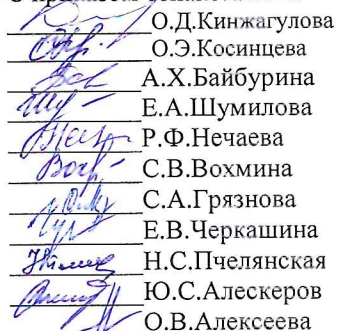 О.Д.Кинжагулова
О.Э.Косинцева
А.Х.Байбурина
Е.А.Шумилова
Р.Ф.Нечаева
С.В.Вохмина
С.А.Грязнова
Е.В.Черкашина
Н.С.Пчелянская
Ю.С.Алескеров
О.В.Алексеева